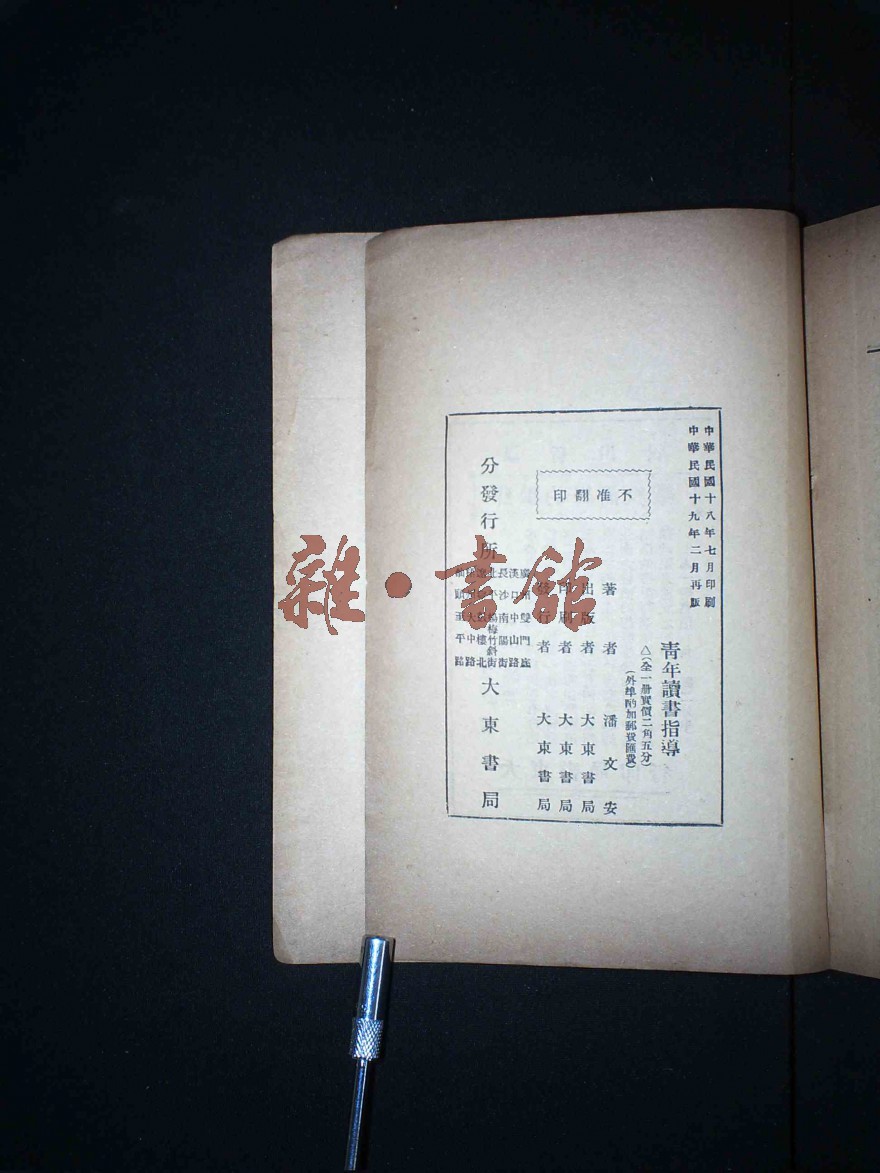 中華民國十八年七月印刷
中華民國十九年二月再版
青年讀書指導
△(全一册實價二角五分)
(外埠酌加郵費匯費)
不准翻印
著者 潘文安
出版者 大東書局
印刷者 大東書局
發行者 大東書局
分發行所
大東書局
雜·書館